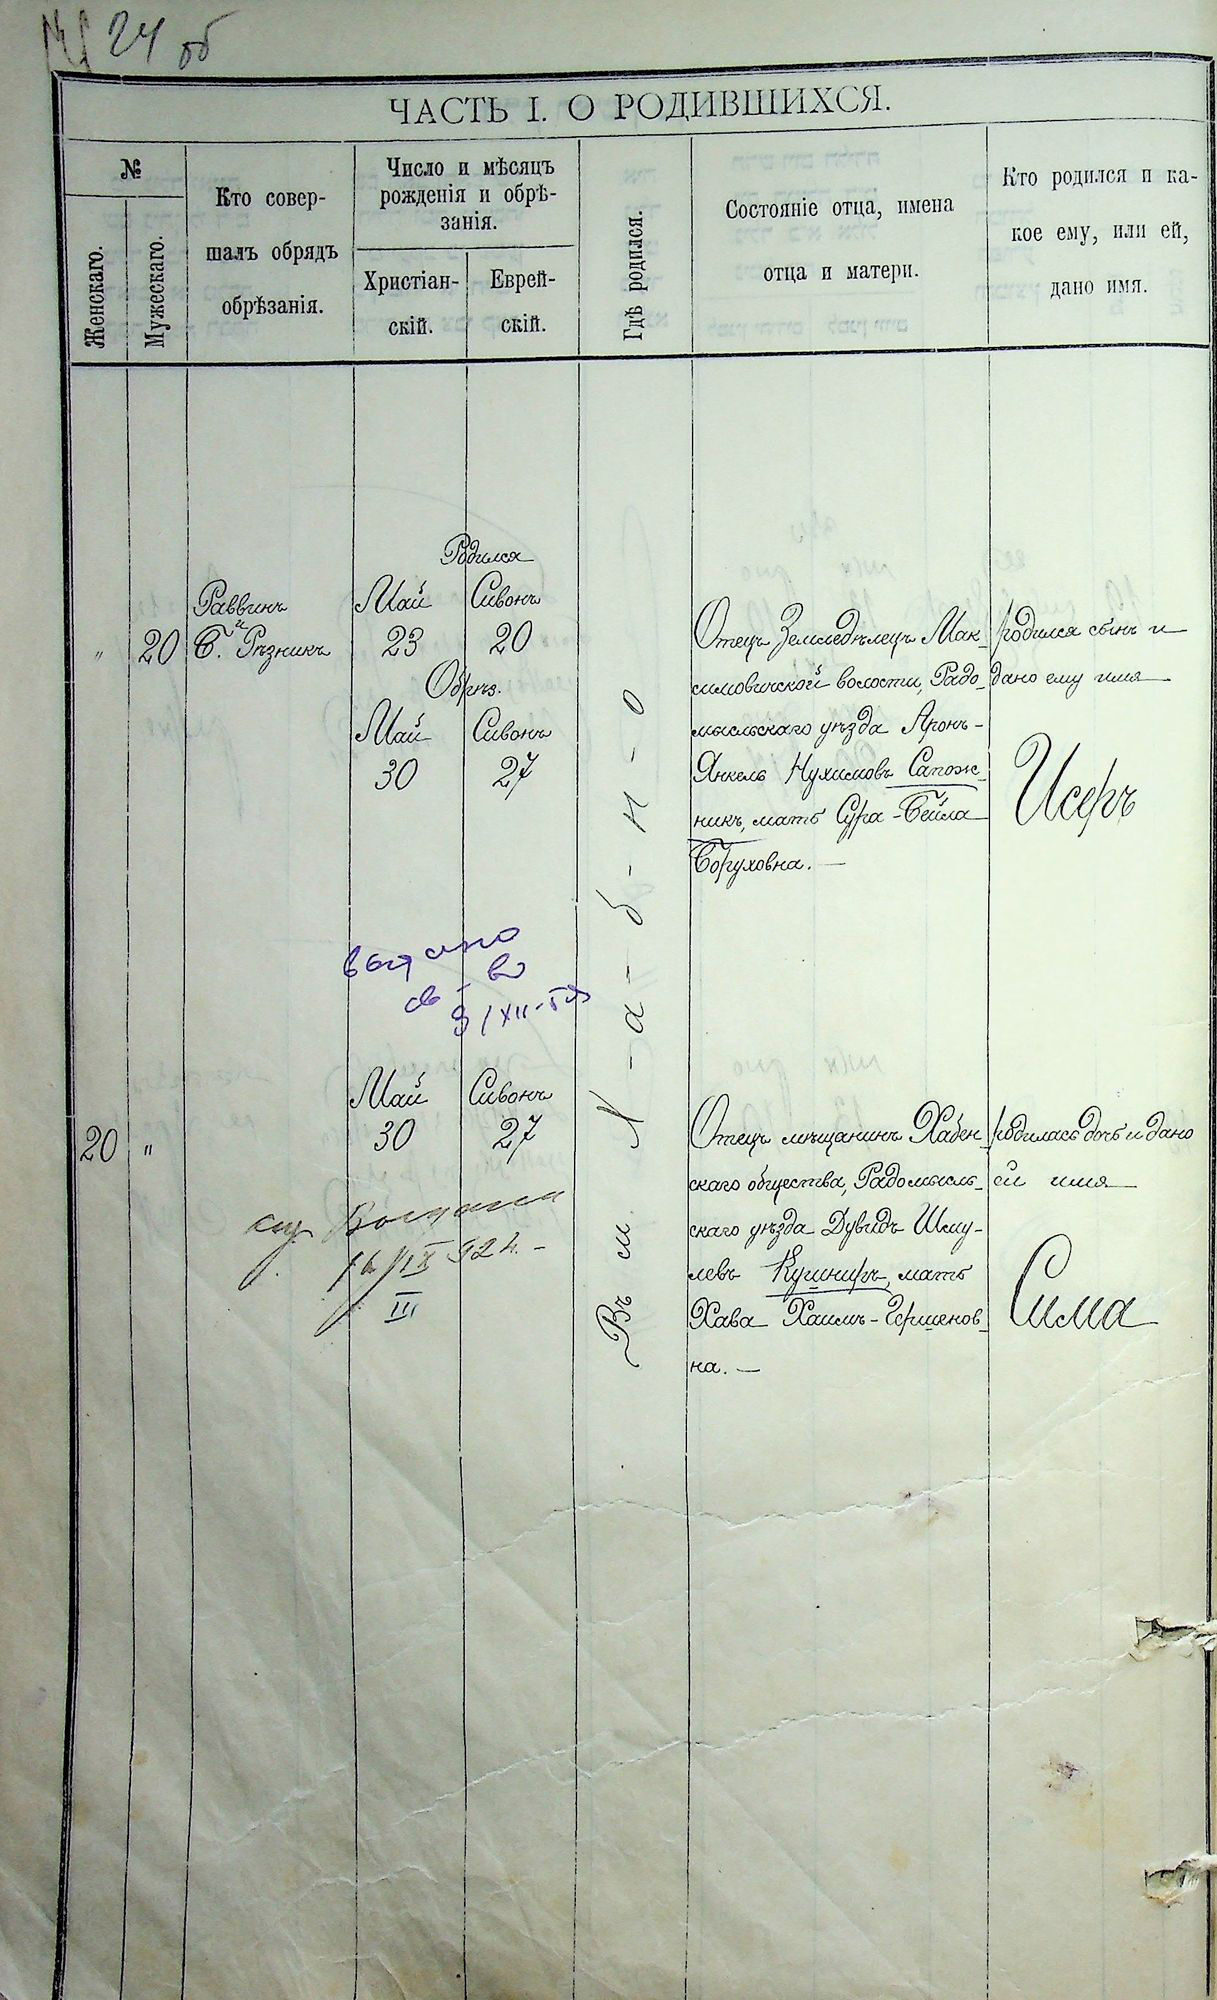 24 об
ЧАСТЬ I. О РОДИВШИХСЯ.
№
Женскаго.
Мужескаго.
Кто совер-
шалъ обрядъ
обрѣзанія.
Число и мѣсяцъ
рожденія и обрѣ-
занія.
Христіан-
скій.
Еврей-
скій.
Гдѣ родился.
Состояніе отца, имена
отца и матери.
Кто родился и ка-
кое ему, или ей,
дано имя.
"
20
Раввинъ
и
Б. Рѣзникъ
Родился
Май
23
Сивонъ
20
Обрѣз.
Май
30
Сивонъ
27
Въ м. Х-а-б-н-о
Отецъ Земледѣлецъ Мак-
симовичской волости, Радо-
мысльскаго уѣзда Аронъ-
Янкель Нухимовъ Сапож-
никъ, мать Сура-Бейла
Боруховна. —
родился сынъ и
дано ему имя
Исеръ
выдано
св-во
9/XII-
20
"
Май
30
Сивонъ
27
Отецъ мѣщанинъ Хабен-
скаго общества, Радомысль-
скаго уѣзда Дувидъ Шму-
левъ Кушниръ, мать
Хава Хаимъ-Гершенов-
на. —
родилась дочь и дано
ей имя
Сима
16/IX 92 г. -
III